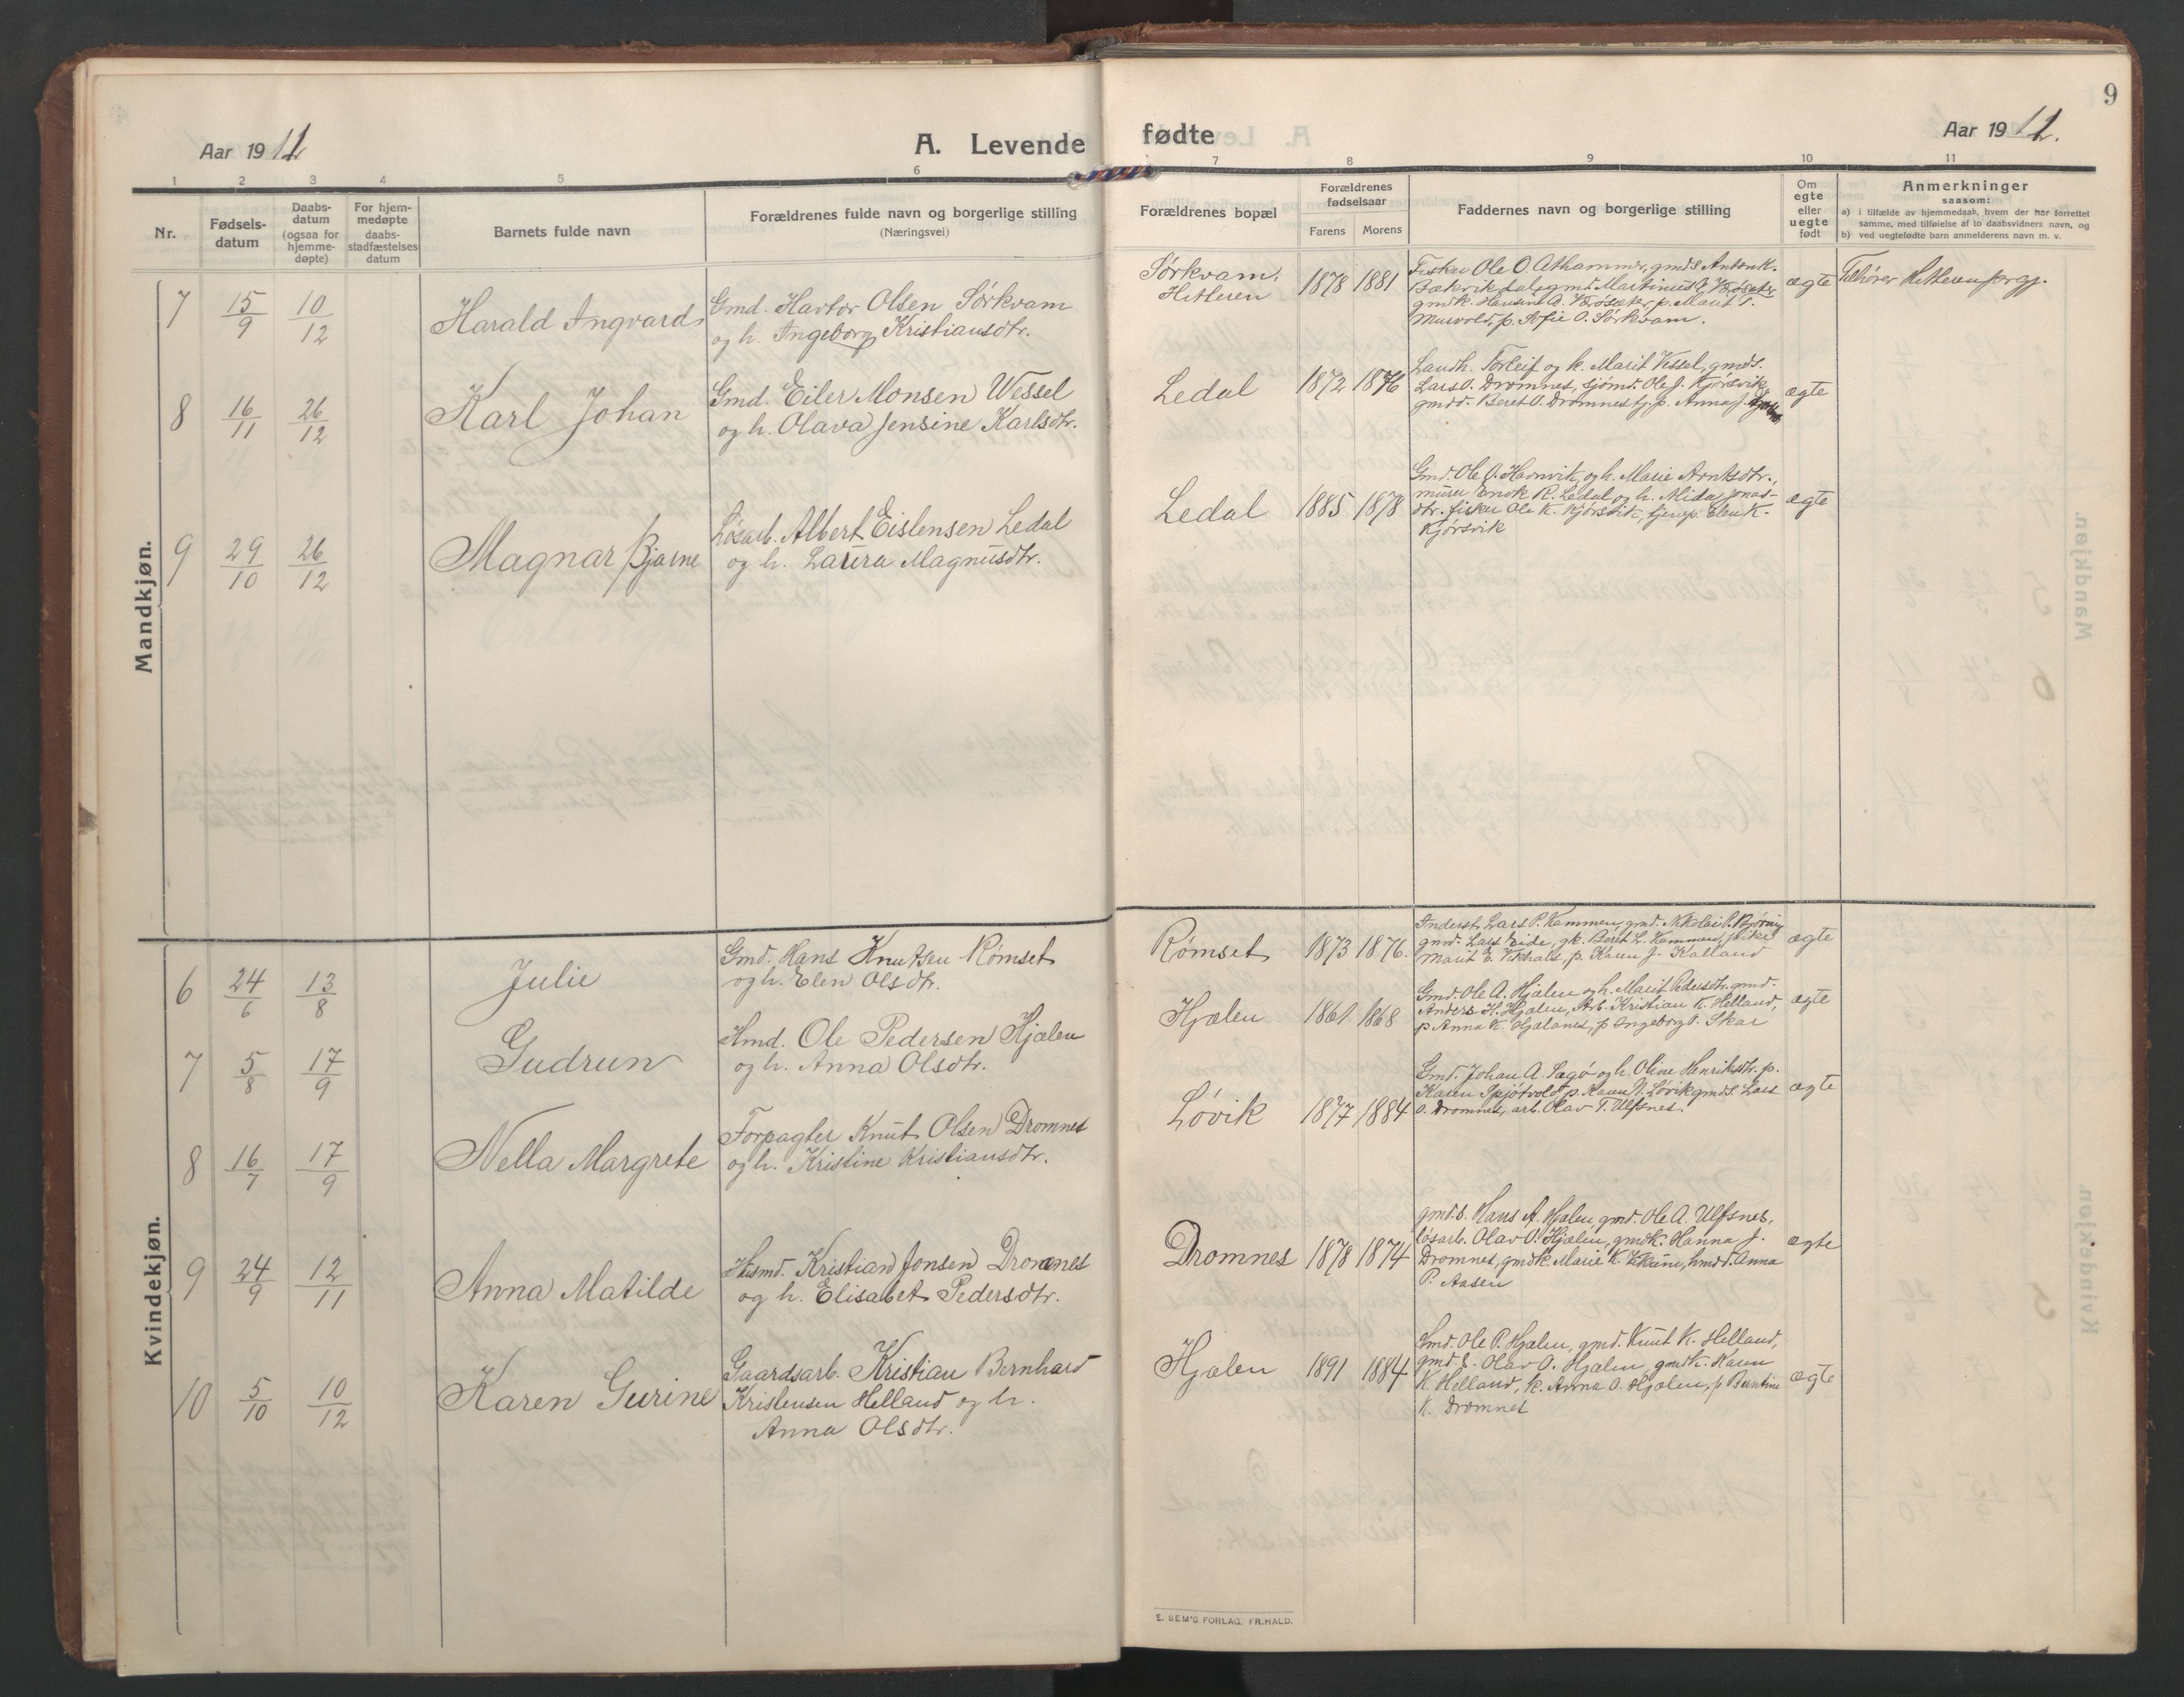 9
Aar 1911
A. Levende fødte
Aar 1911.
1 2 3 4 5 6 7 8 9 10 11
Nr.
Fødsels-
datum
Daabs-
datum
(ogsaa for
hjemme-
døpte)
For hjem-
medøpte
daabs-
stadfæstelses
datum
Barnets fulde navn
Forældrenes fulde navn og borgerlige stilling
(Næringsvei)
Forældrenes bopæl
Forældrenes
fødselsaar
Farens Morens
Faddernes navn og borgerlige stilling
Om
egte
eller
uegte
født
Anmerkninger
saasom:
a) i tilfælde av hjemmedaab, hvem der har forrettet
samme, med tilføielse af to daabsvidners navn, og
b) ved uegtefødte barn anmelderens navn m. v.
Mandkjøn.
7 15/9 10/12 Harald Ingvard
Gmd. Havtor Olsen Sørkvam
og h. Ingeborg Kristiansdtr.
Sørkvam,
Hitteren
1878 1881
Fisker Ole O. Athammer, gmds Anton K.
Bækvik gmd. Martinius
gmdk. A. p. Marit T.
p. Sofie O. Sørkvam.
ægte
Tilhører Hitteren prgj.
8 16/11 26/12 Karl Johan
Gmd. Eiler Monsen Wessel
og h. Olava Jensine Karlsdtr.
Ledal
1872 1876
Landh. Torleif og k. Marit Vessel, gmds.
Lars O. Dromnes, sjømd. Ole J. Kjørsvik,
gmdd. Beret O. Dromnes tj. p. Anna J.
ægte
9 29/10 26/12 Magnar Bjarne
Løsarb. Albert Eislensen Ledal
og h. Laura Magnusdtr.
Ledal
1885 1878
Gmd. Ole O. Havnvik og h. Marie Arntsdtr.,
murer Enok R. Ledal og h. Alida Jonas-
dtr. fisker Ole K. Kjørsvik, tjenp. Elen K.
Kjørsvik
ægte
Kvindekjøn.
6 24/6 13/8 Julie
Gmd. Hans Knutsen Rømset
og h. Elen Olsdtr.
Rømset
1873 1876.
Inderst. Lars P. Kammen, gmd. Nikolai P. Bjørnli
gmd. Lars Eide, gk. Beret L. Kammen, pike
Marit E. Vikhals, p. Karen J. Kalland
ægte
7 5/8 17/9 Gudrun
Hmd. Ole Pedersen Hjælen
og h. Anna Olsdtr.
Hjælen
1861 1868
Gmd. Ole A. Hjælen og h. Marit Pedersdtr. gmd.
Anders H. Hjælen, Arb. Kristian K. Helland,
p Anna K. Hjælanes, p Ingeborg O. Skar
ægte
8 16/7 17/9 Nella Margrete
Forpagter Knut Olsen Dromnes
og h. Kristine Kristiansdtr.
Løvik
1877 1884
Gmd. Johan A. Sagø og h. Oline Henriksdtr. p.
Karen Spjøtvold p. Karen N. Løvik gmds. Lars
O. Dromnes, arb. Olav T. Ulfsnes.
ægte
9 24/9 12/11 Anna Matilde
Husmd. Kristian Jonsen Dromnes
og h. Elisabet Pedersdtr.
Dromnes
1878 1874
gmds. Hans A. Hjælen, gmd. Ole A. Ulfsnes,
løsarb. Olav O. Hjælen, gmdk. Hanna J.
Dromnes, gmdk. Marie K. hmdd. Anna
P. Aasen
ægte
10 5/10 10/12 Karen Gurine
Gaardsarb. Kristian Bernhard
Kristensen Helland og h.
Anna Olsdtr.
Hjælen
1891 1884
Hmd. Ole P. Hjælen, gmd. Knut K. Helland,
gmds. Olav O. Hjælen, gmdk. Karen
K. Helland, k. Anna O. Hjælen, p Berntine
K. Dromnes
ægte
E. SEM'S FORLAG, FR.HALD.